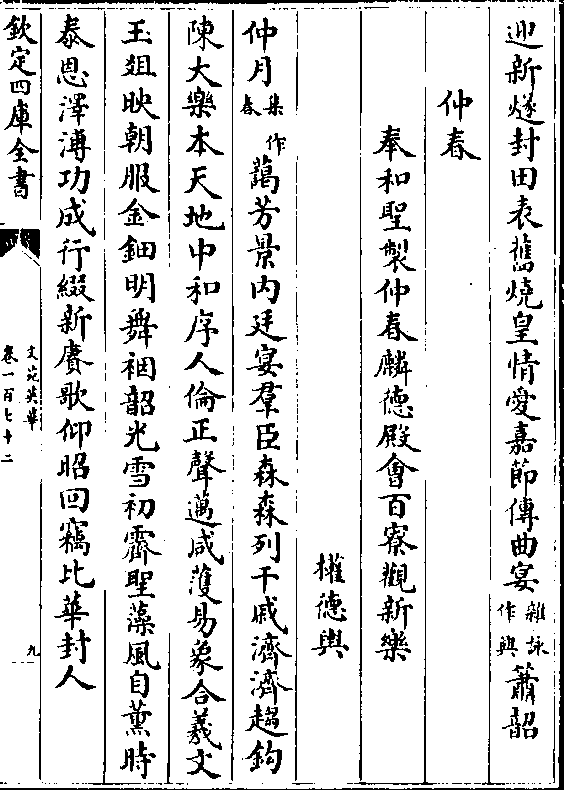 迎新燧封田表舊燒皇情愛嘉節傳曲宴雜詠作與蕭韶
仲春
奉和聖製仲春麟德殿會百寮觀新樂
權德輿
仲月集作春藹芳景内廷宴羣臣森森列干戚濟濟趨鈎
陳大樂本天地中和序人倫正聲邁咸頀易象合羲文
玉俎映朝服金鈿明舞裀韶光雪初霽聖藻風自薰時
泰恩澤溥功成行綴新賡歌仰昭回竊比華封人
欽定四庫全書
文苑英華
卷一百七十二
九